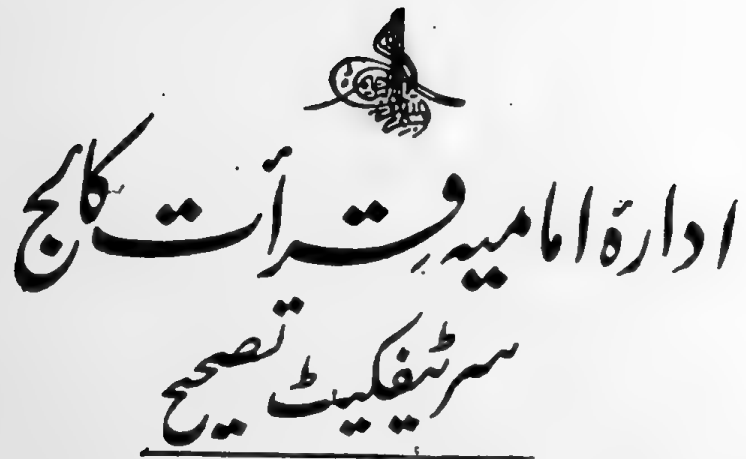 ادارۂ امامیہ قِرأت کالج
سرٹیفکیٹ تصحیح